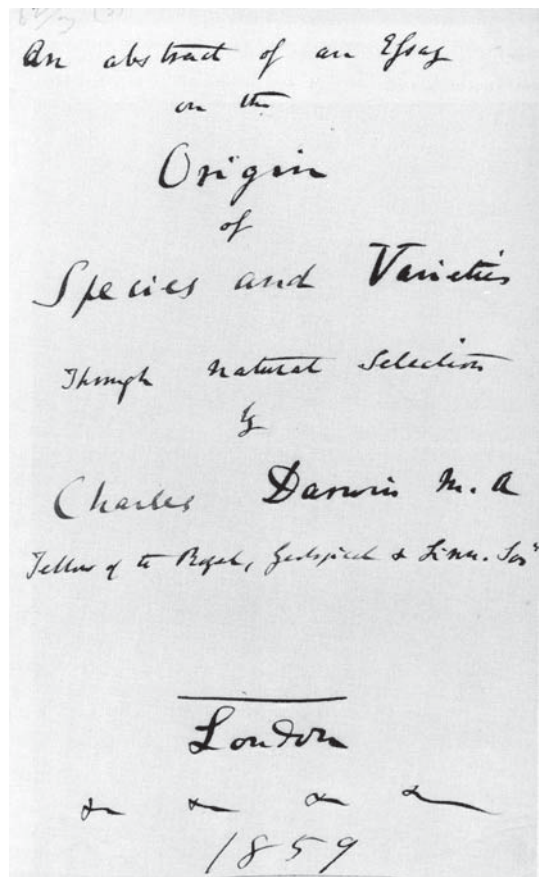 An abstract of an Essay
on the
Origin
of
Species and Varieties
Through natural Selection
by
Charles Darwin M. A
Fellow of the Royal, Geological & Linn. Socy
London
& & & &
1859